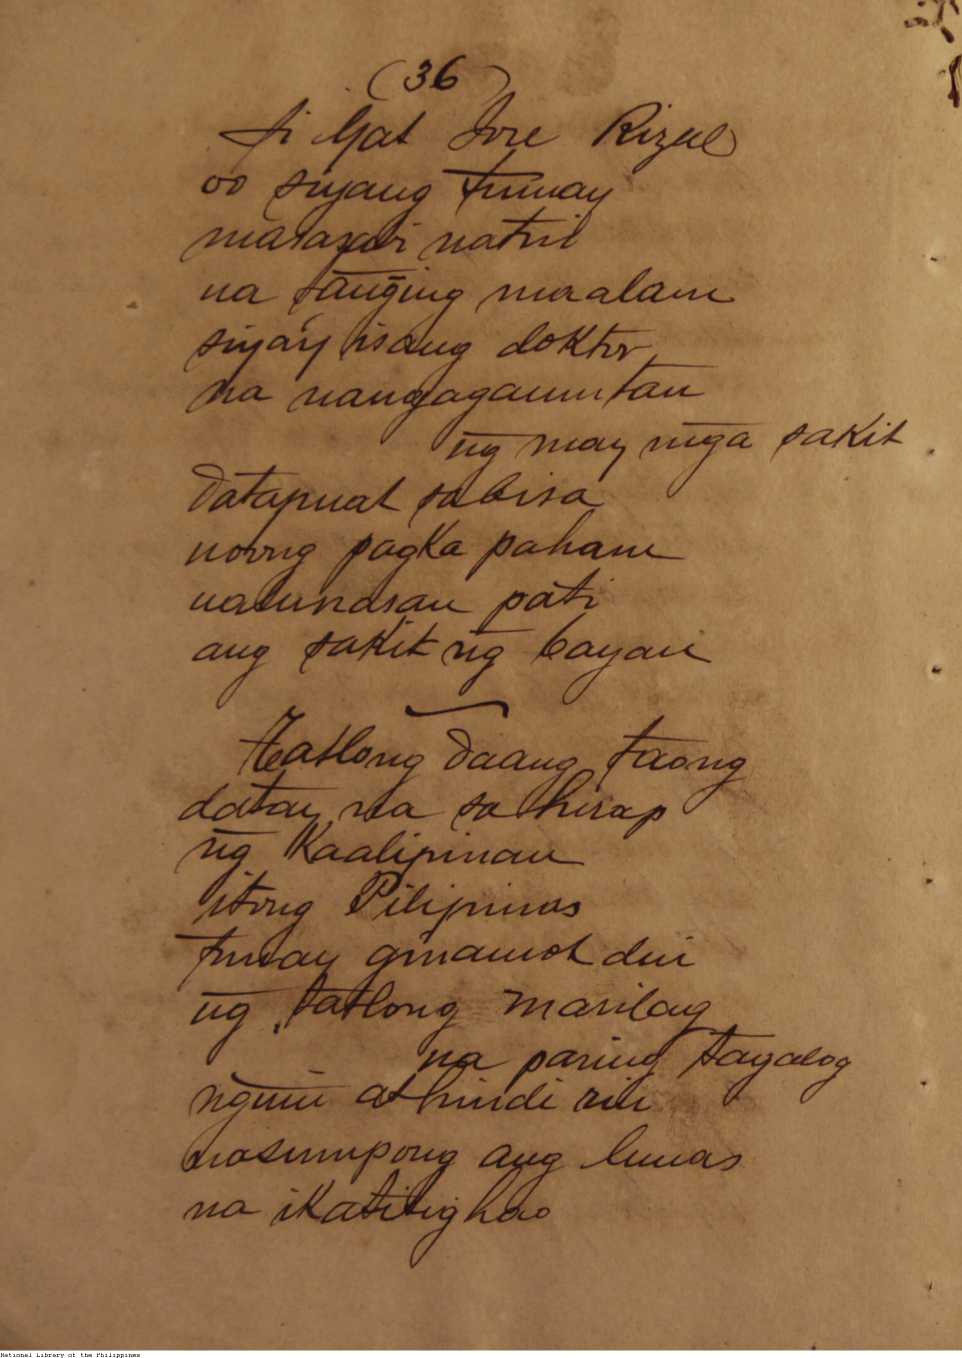 (36)
Si Gat Jose Rizal
oo siyang tunay
masasabi natin
na tanging maalam
siya'y isang doktor
na nangagamutan
ng may mga sakit
datapuat sa bisa
noong pagka paham
nalunasan pati
ang sakit ng bayan
Tatlong daang taong
datay na sa hirap
ng Kaalipinan
itong Pilipinas
tunay ginamot din
ng tatlong marilag
na paring tagalog
nguni at hindi rin
nasumpong ang lunas
na ikatitighao
National Library of the Philippines